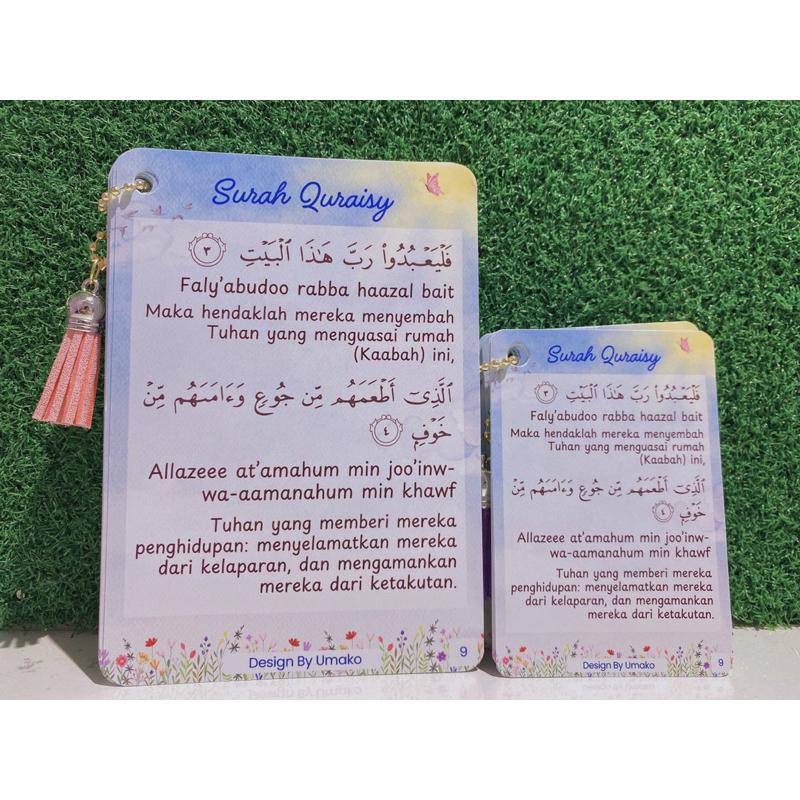 Surah Quraisy
فَلْيَعْبُدُوا۟ رَبَّ هَـٰذَا ٱلْبَيْتِ ٣
Faly'abudoo rabba haazal bait
Maka hendaklah mereka menyembah
Tuhan yang menguasai rumah
(Kaabah) ini,
ٱلَّذِىٓ أَطْعَمَهُم مِّن جُوعٍ وَءَامَنَهُم مِّنْ
خَوْفٍۭ ٤
Allazeee at'amahum min joo'inw-
wa-aamanahum min khawf
Tuhan yang memberi mereka
penghidupan: menyelamatkan mereka
dari kelaparan, dan mengamankan
mereka dari ketakutan.
Design By Umako
9
Surah Quraisy
فَلْيَعْبُدُوا۟ رَبَّ هَـٰذَا ٱلْبَيْتِ ٣
Faly'abudoo rabba haazal bait
Maka hendaklah mereka menyembah
Tuhan yang menguasai rumah
(Kaabah) ini,
ٱلَّذِىٓ أَطْعَمَهُم مِّن جُوعٍ وَءَامَنَهُم مِّنْ
خَوْفٍۭ ٤
Allazeee at'amahum min joo'inw-
wa-aamanahum min khawf
Tuhan yang memberi mereka
penghidupan: menyelamatkan mereka
dari kelaparan, dan mengamankan
mereka dari ketakutan.
Design By Umako
9